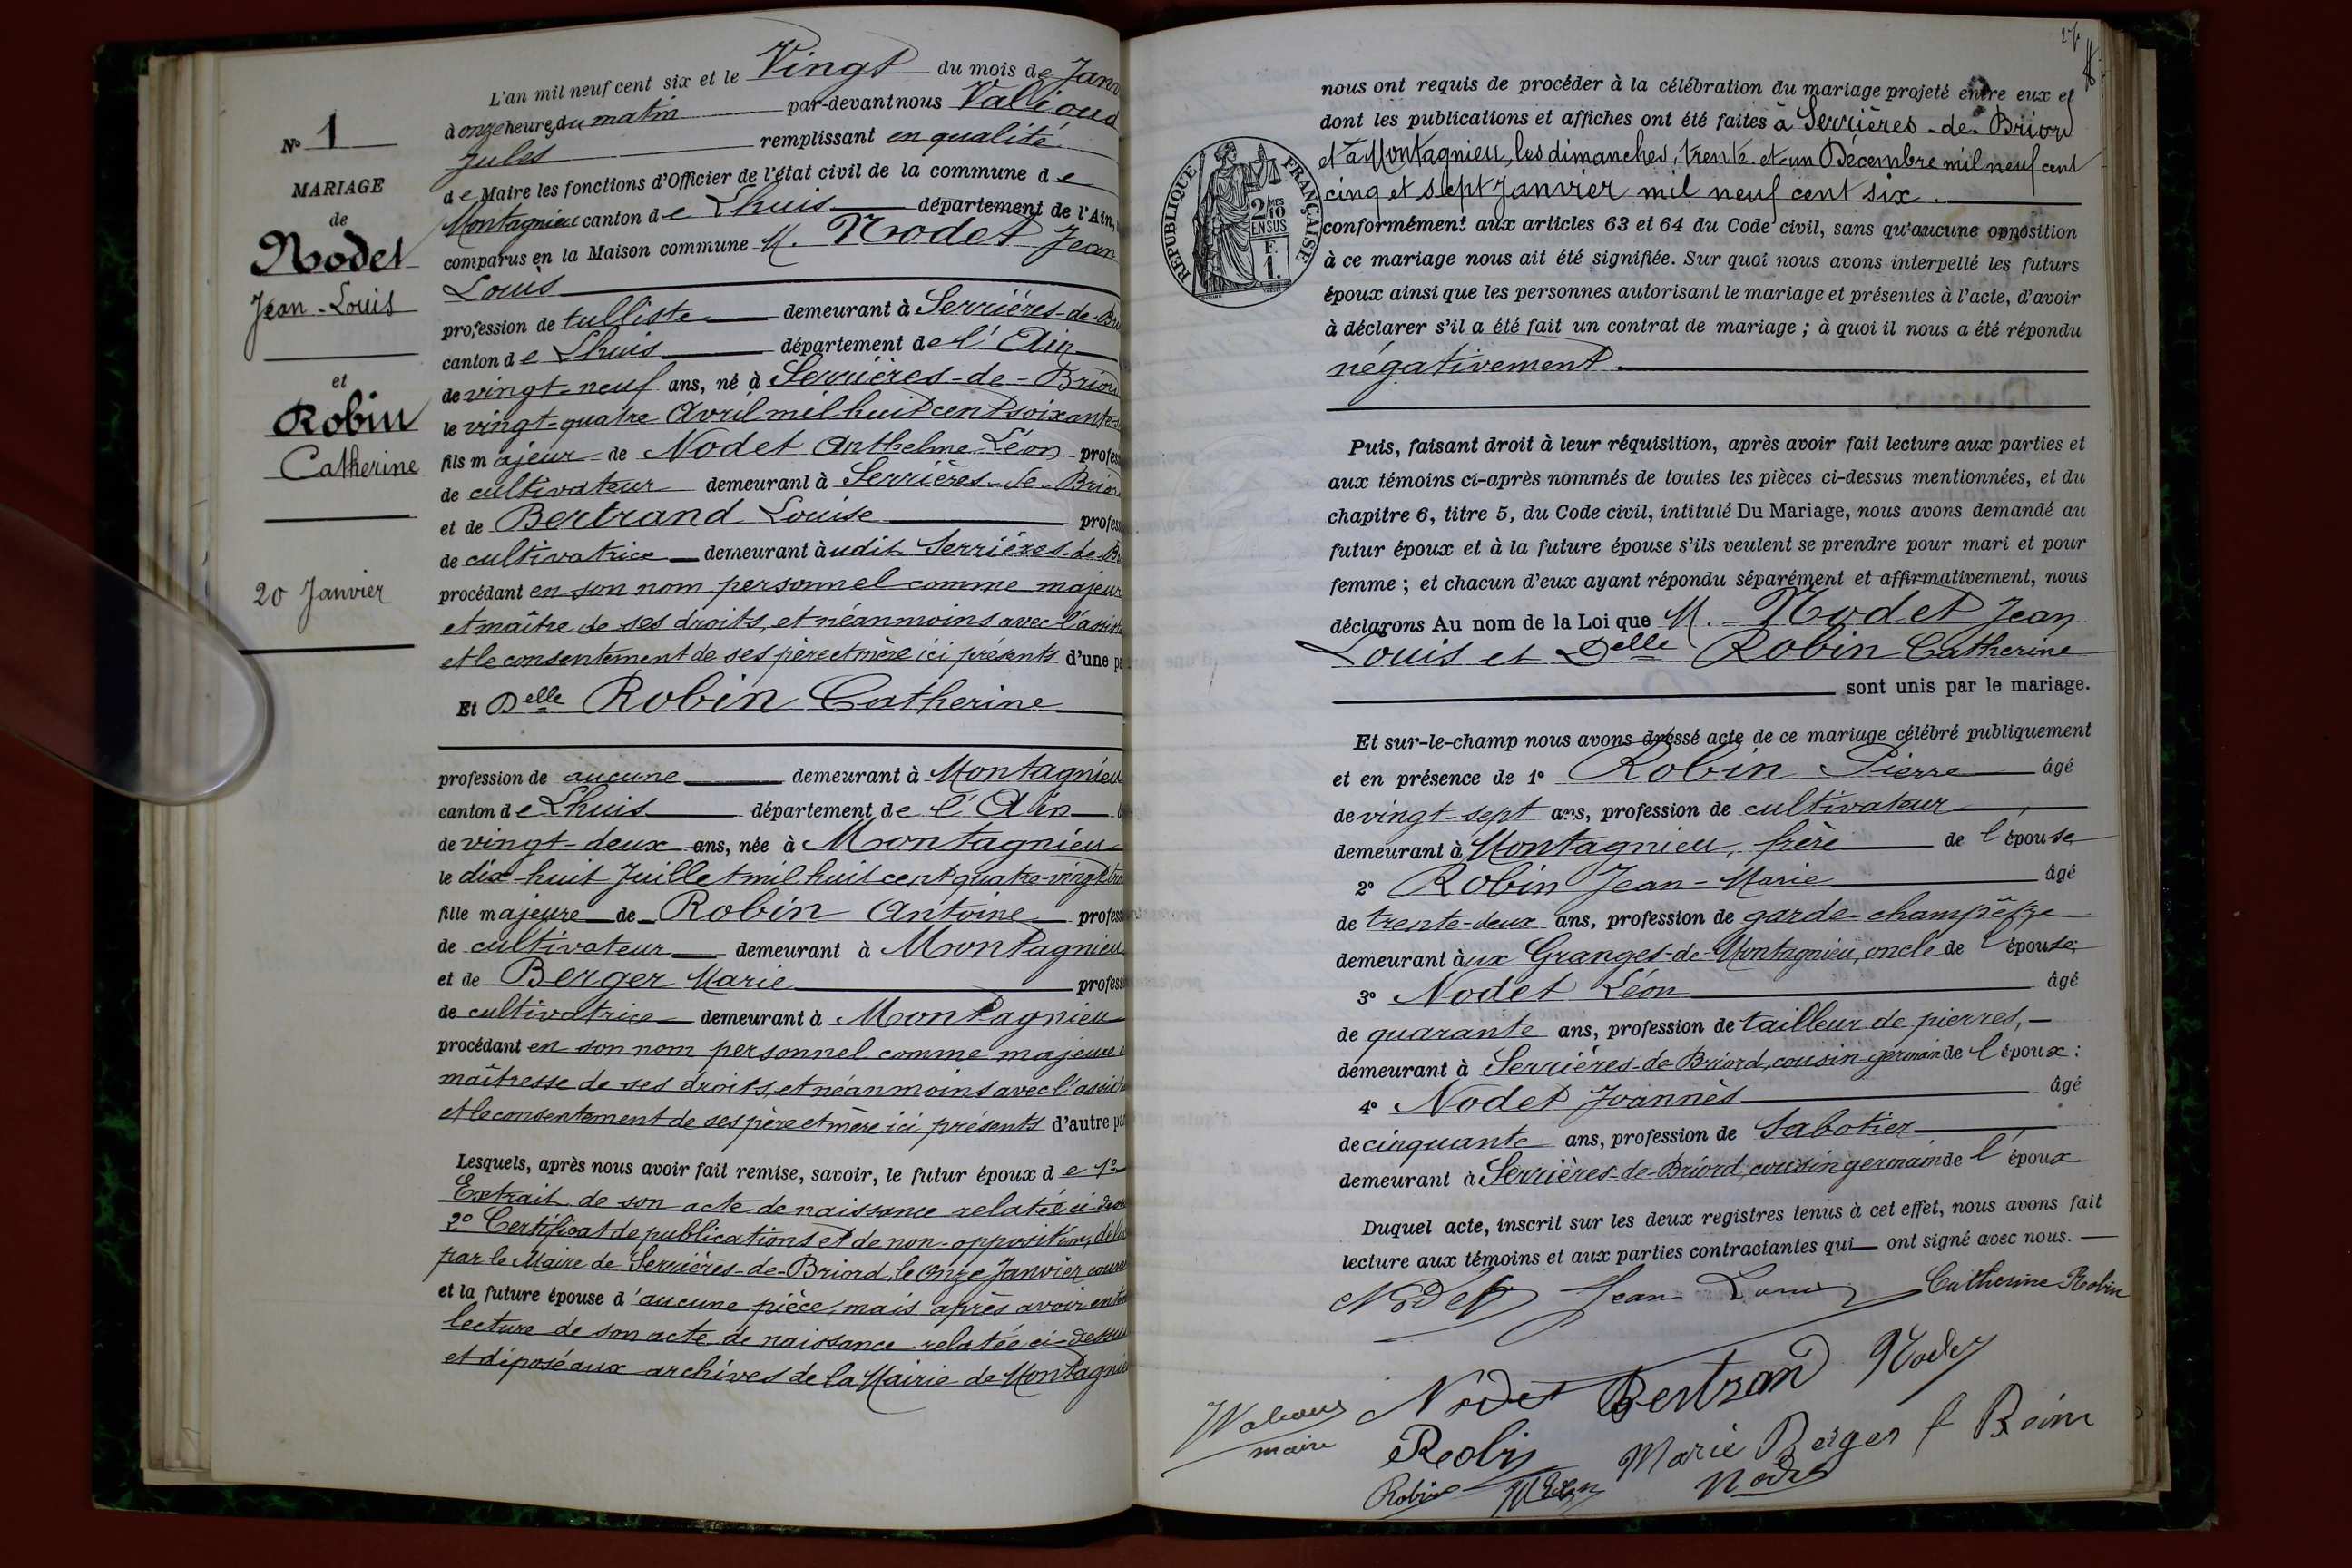 N° 1
MARIAGE
de
Nodet
Jean-Louis
et
Robin
Catherine
20 Janvier
L'an mil neuf cent six et le Vingt du mois de Janv
à onze heures du matin par-devant nous Vallioud
Jules remplissant en qualité
de Maire les fonctions d'Officier de l'état civil de la commune de
Montagnieu canton de Lhuis département de l'Ain,
comparus en la Maison commune M. Nodet Jean
Louis
profession de tulliste demeurant à Serrières-de-Br
canton de Lhuis département de l'Ain
de vingt-neuf ans, né à Serrières-de-Briord
le vingt-quatre Avril mil huit cent soixante-
fils majeur de Nodet Anthelme Léon profess
de cultivateur demeurant à Serrières-de-Brior
et de Bertrand Louise profess
de cultivatrice demeurant àudit Serrières-de-Br
procédant en son nom personnel comme majeur
et maître de ses droits, et néanmoins avec l'assist
et le consentement de ses père et mère ici présents d'une pa
Et Delle Robin Catherine
profession de aucune demeurant à Montagnieu
canton de Lhuis département de l'Ain
de vingt-deux ans, née à Montagnieu
le dix-huit Juillet mil huit cent quatre-vingt tro
fille majeure de Robin Antoine profess
de cultivateur demeurant à Montagnieu
et de Berger Marie profess
de cultivatrice demeurant à Montagnieu
procédant en son nom personnel comme majeure e
maîtresse de ses droits, et néanmoins avec l'assist
et le consentement de ses père et mère ici présents d'autre pa
Lesquels, après nous avoir fait remise, savoir, le futur époux de 1°
Extrait de son acte de naissance relatée ci-dess
2° Certificat de publications et de non-opposition, déliv
par le Maire de Serrières-de-Briord, le onze Janvier coura
et la future épouse d'aucune pièce, mais après avoir ent
lecture de son acte de naissance relatée ci-dessus
et déposé aux archives de la Mairie de Montagnieu
nous ont requis de procéder à la célébration du mariage projeté entre eux et
dont les publications et affiches ont été faites à Serrières-de-Briord
et à Montagnieu, les dimanches, trente-et-un Décembre mil neuf cent
cinq et sept Janvier mil neuf cent six.
RÉPUBLIQUE FRANÇAISE
2/10 EN SUS
F. 1.
conformément aux articles 63 et 64 du Code civil, sans qu'aucune opposition
à ce mariage nous ait été signifiée. Sur quoi nous avons interpellé les futurs
époux ainsi que les personnes autorisant le mariage et présentes à l'acte, d'avoir
à déclarer s'il a été fait un contrat de mariage ; à quoi il nous a été répondu
négativement
Puis, faisant droit à leur réquisition, après avoir fait lecture aux parties et
aux témoins ci-après nommés de toutes les pièces ci-dessus mentionnées, et du
chapitre 6, titre 5, du Code civil, intitulé Du Mariage, nous avons demandé au
futur époux et à la future épouse s'ils veulent se prendre pour mari et pour
femme ; et chacun d'eux ayant répondu séparément et affirmativement, nous
déclarons Au nom de la Loi que M. Nodet Jean
Louis et Delle Robin Catherine
sont unis par le mariage.
Et sur-le-champ nous avons dressé acte de ce mariage célébré publiquement
et en présence de 1° Robin Pierre âgé
de vingt-sept ans, profession de cultivateur
demeurant à Montagnieu, frère de l'épouse
2° Robin Jean-Marie âgé
de trente-deux ans, profession de garde-champêtre
demeurant àux Granges-de-Montagnieu, oncle de l'épouse,
3° Nodet Léon âgé
de quarante ans, profession de tailleur de pierres,
demeurant à Serrières-de-Briord, cousin-germain de l'époux :
4° Nodet Joannès âgé
de cinquante ans, profession de Sabotier
demeurant à Serrières-de-Briord, cousin germain de l'époux
Duquel acte, inscrit sur les deux registres tenus à cet effet, nous avons fait
lecture aux témoins et aux parties contractantes qui ont signé avec nous.
Nodet Jean Louis Catherine Robin
Nodet Bertrand Nodet
maire
Robin Marie Berger
Robin Nodet